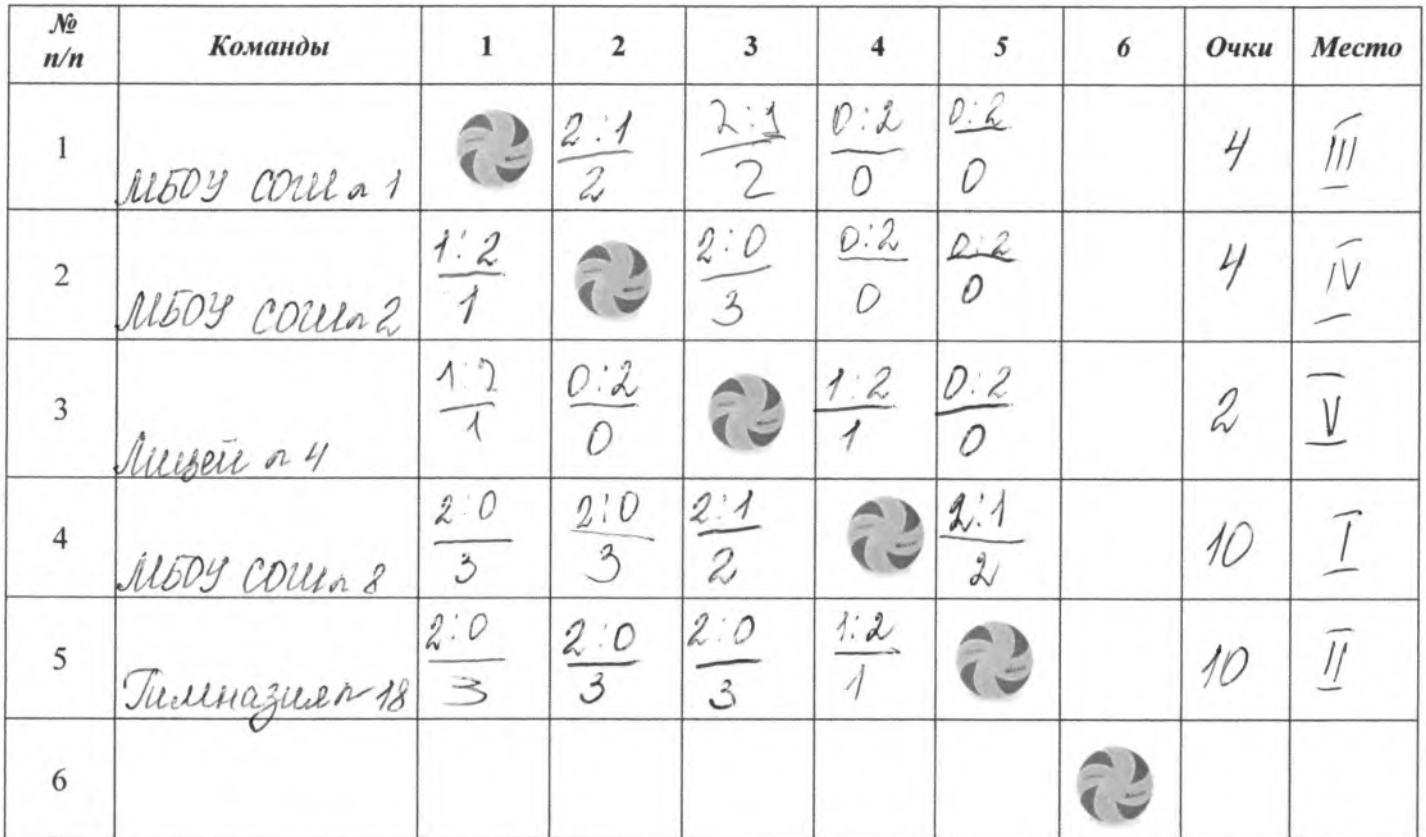 № п/п Команды 1 2 3 4 5 6 Очки Место
1 МБОУ СОШ №1 2:1 2 2:1 2 0:2 0 0:2 0 4 III
2 МБОУ СОШ №2 1:2 1 2:0 3 0:2 0 0:2 0 4 IV
3 Лицей №4 1:2 1 0:2 0 1:2 1 0:2 0 2 V
4 МБОУ СОШ №8 2:0 3 2:0 3 2:1 2 2:1 2 10 I
5 Гимназия №18 2:0 3 2:0 3 2:0 3 1:2 1 10 II
6